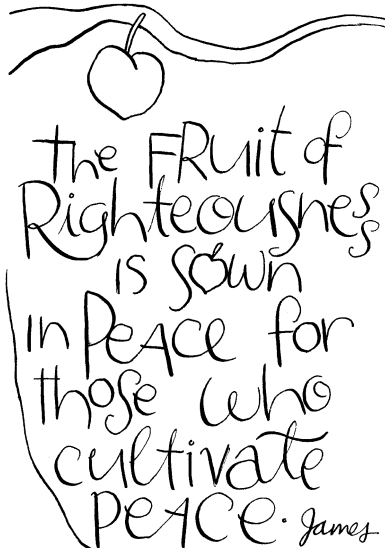 the FRuit of
Righteousness
is sown
in Peace for
those who
cultivate
PEACE. James